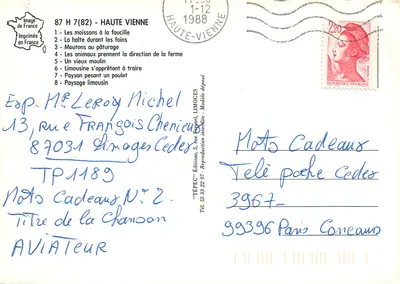 Image
de France
Imprimée
en France
87 H 7(82) - HAUTE VIENNE
1 - Les moissons à la faucille
2 - La halte durant les foins
3 - Moutons au pâturage
4 - Les animaux prennent la direction de la ferme
5 - Un vieux moulin
6 - Limousine s'apprêtant à traire
7 - Paysan pesant un poulet
8 - Paysage limousin
1-12
1988
HAUTE-VIENNE
2,20
Exp. Mr Leroy Michel
13, rue François Chenieux
87031 Limoges Cedex
TP 1189
Mots Cadeaux N° 2
Titre de la Chanson
AVIATEUR
LIMOGES
Tél. 55 33 22 97 - Reproduction interdite - Modèle déposé
Mots Cadeaux
Télé poche Cedex
3967-
99396 Paris Concours